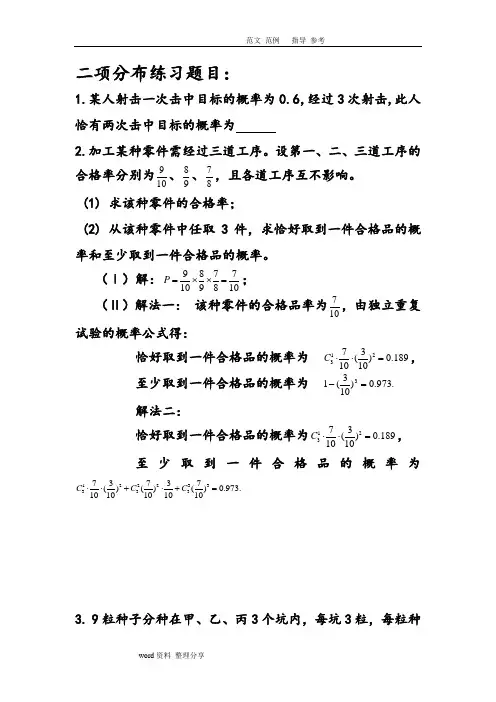 范文 范例 指导 参考
二项分布练习题目：
1.某人射击一次击中目标的概率为0.6,经过3次射击,此人
恰有两次击中目标的概率为
2.加工某种零件需经过三道工序。设第一、二、三道工序的
合格率分别为9/10、8/9、7/8，且各道工序互不影响。
(1) 求该种零件的合格率；
(2) 从该种零件中任取3件，求恰好取到一件合格品的概
率和至少取到一件合格品的概率。
（Ⅰ）解：P=9/10×8/9×7/8=7/10；
（Ⅱ）解法一： 该种零件的合格品率为7/10，由独立重复
试验的概率公式得：
恰好取到一件合格品的概率为 C₃¹·7/10·(3/10)²=0.189，
至少取到一件合格品的概率为 1−(3/10)³=0.973.
解法二：
恰好取到一件合格品的概率为C₃¹·7/10·(3/10)²=0.189，
至少取到一件合格品的概率为
C₃¹·7/10·(3/10)²+C₃²(7/10)²·3/10+C₃³(7/10)³=0.973.
3. 9粒种子分种在甲、乙、丙3个坑内，每坑3粒，每粒种
word资料 整理分享